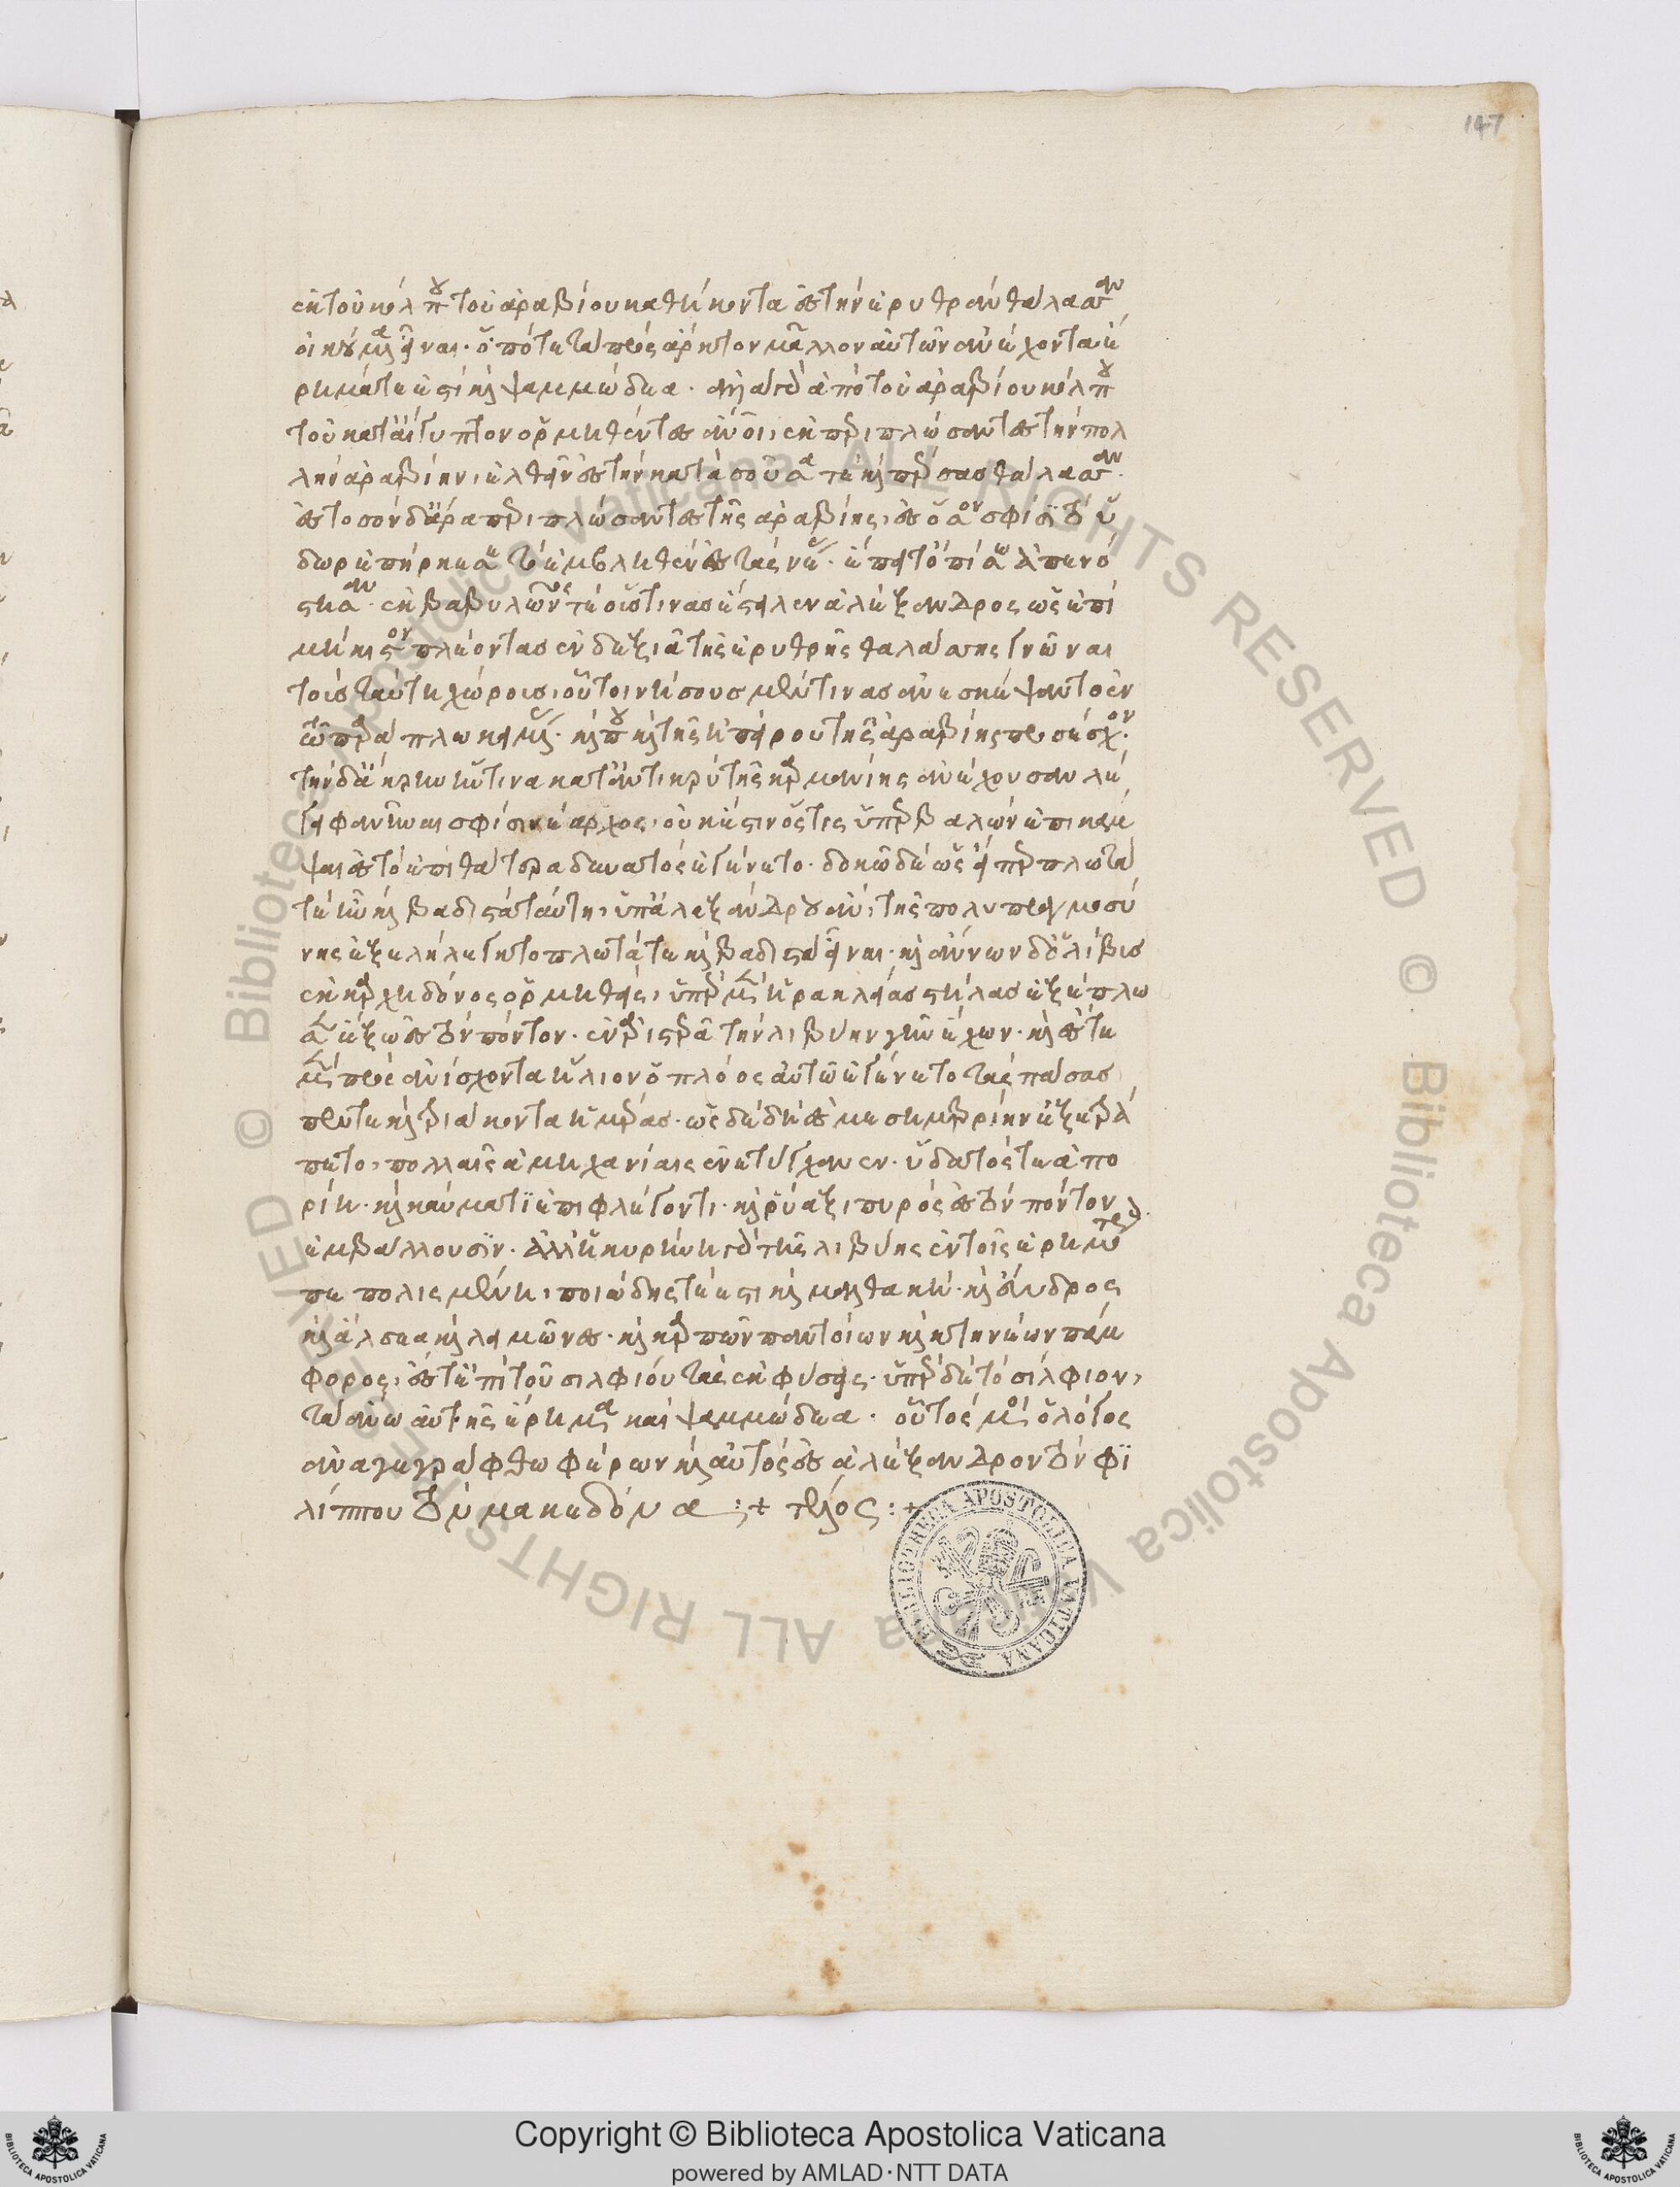 ἐκ τοῦ κόλπου τοῦ ἀραβίου καθήκοντα ἐς τὴν ἐρυθρὰν θάλασσαν
οἰκουμένα εἶναι· ὁπότε τὰ πρὸς ἄρκτον μᾶλλον αὐτῶν ἀνέχοντα ἐ
ρημά τε ἐστὶ καὶ ψαμμώδεα. ἀλλὰ γὰρ ἀπὸ τοῦ ἀραβίου κόλπου
τοῦ κατ' αἴγυπτον ὁρμηθέντες ἄνοι, ἐκπεριπλώσαντες τὴν πολ
λὴν ἀραβίην, ἐλθεῖν ἐς τὴν κατὰ σοῦσά τε καὶ πέρσας θάλασσαν.
ἐς τοσόνδε ἄρα περιπλώσαντες τῆς ἀραβίης, ἐς ὅσον σφίσι τὸ ὕ
δωρ ἐπήρκεσε τὸ ἐμβληθὲν ἐς τὰς νέας. ἔπειτα ὀπίσω ἀπενό
στησαν. ἐκ βαβυλῶνός τε οὕστινας ἔστειλεν ἀλέξανδρος ὡς ἐπὶ
μήκιστον πλέοντας ἐν δεξιᾷ τῆς ἐρυθρῆς θαλάσσης γνῶναι
τοὺς ταύτῃ χώρους, οὗτοι νήσους μέν τινας ἀνεσκέψαντο ἐν
τῷ παράπλῳ κειμένας. καί που καὶ τῆς ἠπείρου τῆς ἀραβίης προσέσχον.
τὴν δὲ ἄκρην ἥντινα καταντικρὺ τῆς καρμανίης ἀνέχουσαν λέ
γει φανῆναι σφίσι νέαρχος, οὐκ ἔστιν ὅστις ὑπερβαλὼν ἐπικάμ
ψαι ἐς τὸ ἐπὶ θάτερα δυνατὸς ἐγένετο. δοκῶ δὲ ὡς εἴπερ πλωτά
τε ἦν καὶ βαδιστὰ ταύτῃ, ὑπ' ἀλεξάνδρου ἂν, τῆς πολυπραγμοσύ
νης ἐξελήλεγκτο πλωτά τε καὶ βαδιστὰ εἶναι. καὶ ἄννων δὲ ὁ λίβυς
ἐκ καρχηδόνος ὁρμηθεὶς, ὑπὲρ μὲν ἡρακλείας στήλας ἐξέπλω
σεν ἔξω ἐς τὸν πόντον. ἐν ἀριστερᾷ τὴν λιβύην γῆν ἔχων. καὶ ἔστε
μὲν πρὸς ἀνίσχοντα ἥλιον ὁ πλόος αὐτῷ ἐγένετο τὰς πάσας
πέντε καὶ τριάκοντα ἡμέρας. ὡς δὲ δὴ ἐς μεσημβρίην ἐξετρά
πετο, πολλαῖς ἀμηχανίαις ἐνετύγχανεν. ὕδατός τε ἀπο
ρίῃ. καὶ καύματι ἐπιφλέγοντι. καὶ ῥύαξι πυρὸς ἐς τὸν πόντον
ἐμβάλλουσιν. ἀλλ' ἡ κυρήνη γὰρ τῆς λιβύης ἐν τοῖς ἐρημοτέροις
πεπολισμένη, ποιώδης τέ ἐστι καὶ μαλθακὴ. καὶ ἔνυδρος
καὶ ἄλσεα καὶ λειμῶνες. καὶ καρπῶν παντοίων καὶ κτηνέων πάμ
φορος, ἔστε ἐπὶ τοῦ σιλφίου τὰς ἐκφύσεις. ὑπὲρ δὲ τὸ σίλφιον,
τὰ ἄνω αὐτῆς ἔρημα καὶ ψαμμώδεα. οὗτός μοι ὁ λόγος
ἀναγεγράφθω φέρων καὶ αὐτὸς ἐς ἀλέξανδρον τὸν φι
λίππου τὸν μακεδόνα :+ τέλος :+
147